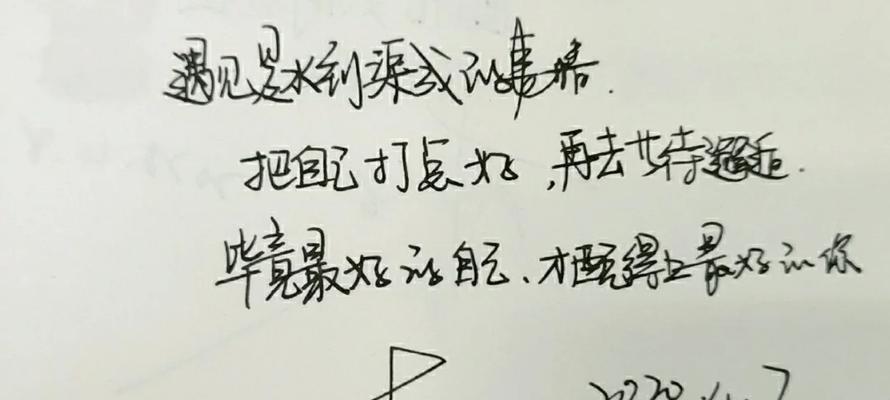 遇见是水到渠成的事情.
把自己打点好,再去共待邂逅.
毕竟最好的自己、才配得上最好的你